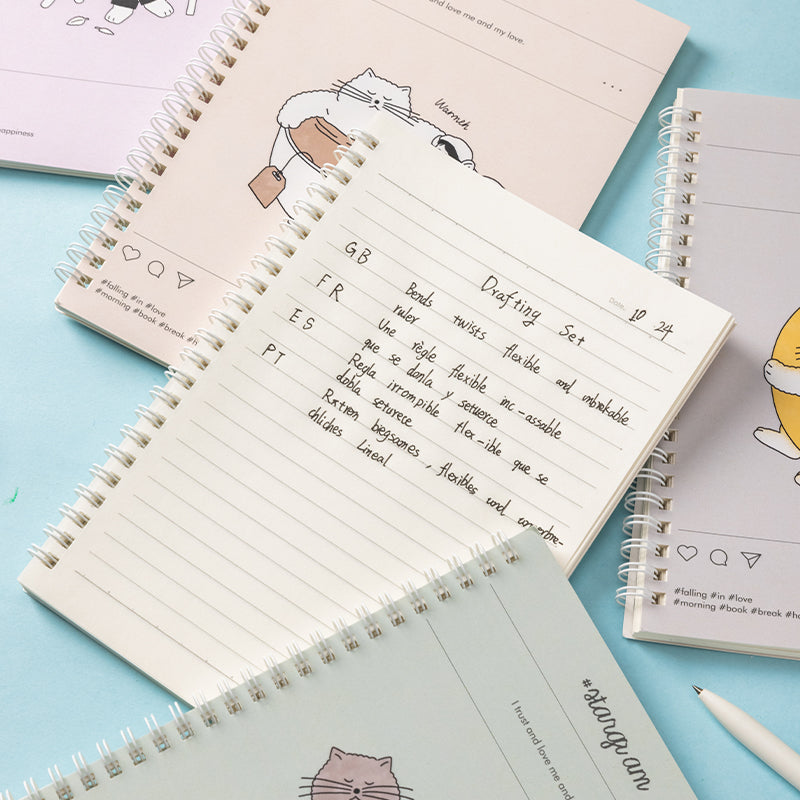 and love me and my love.
...
Warmeh
appiness
#falling #in #love
#morning #book #break #h
Date.
10 24
Drafting Set
GB
Bends twists flexible and unbrekable
ruler
FR
Une règle flexible inc-assable
que se donla y setuerce
ES
Regla irrompible flex-ible que se
dobla seturece
PT
biegsames, flexibles und
Lineal
#falling #in #love
#morning #book #break #ha
#stargram
I trust and love me and